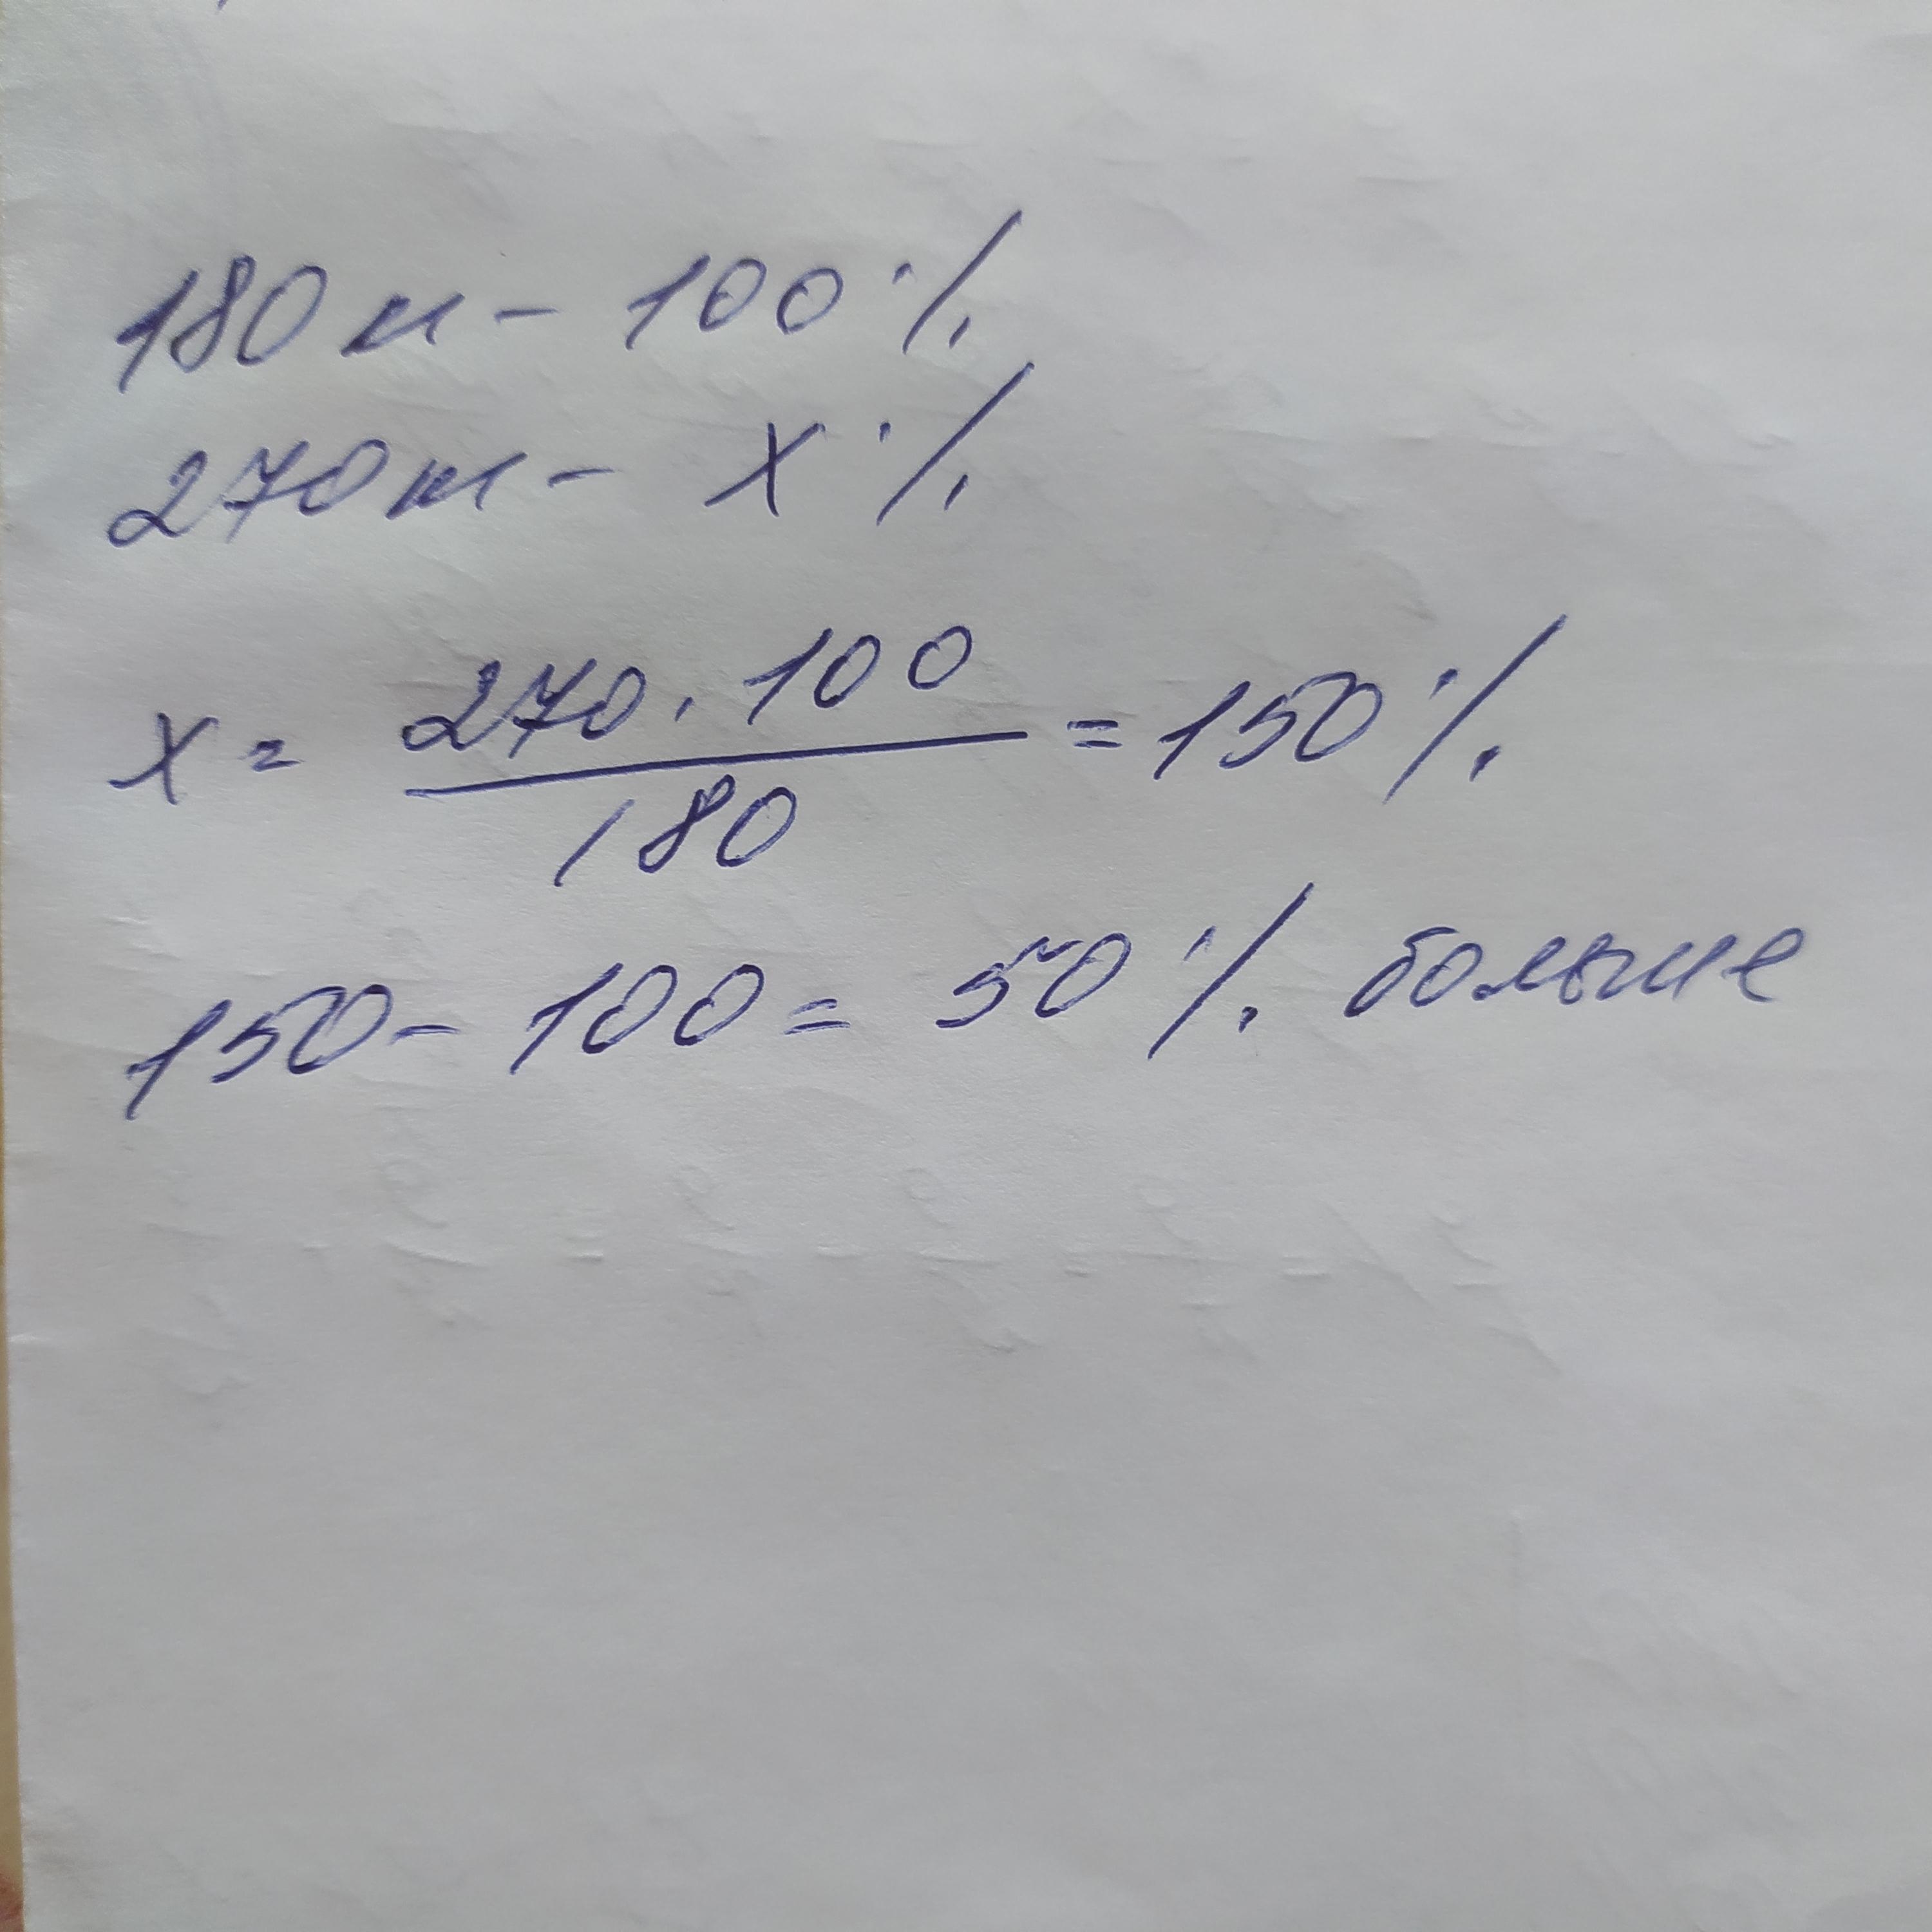 180 м - 100 %
270 м - х %
х = 270 · 100 / 180 = 150 %
150 - 100 = 50 % больше